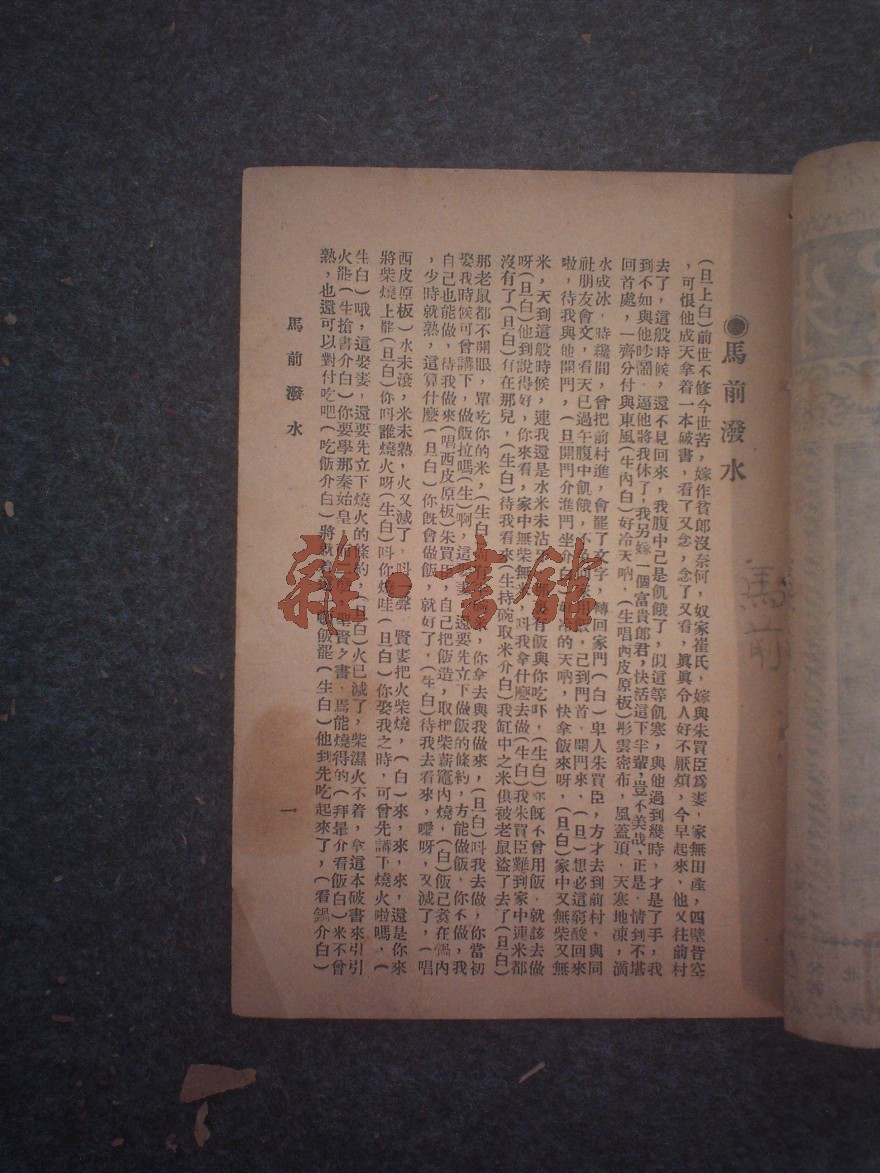 ●馬前潑水
(旦上白)前世不修今世苦，嫁作貧郎沒奈何，奴家崔氏，嫁與朱買臣爲妻，家無田產，四壁皆空
，可恨他成天拿着一本破書，看了又念，念了又看，眞眞令人好不厭煩，今早起來，他又往前村
去了，這般時候，還不見回來，我腹中已是飢餓了，似這等飢寒，與他過到幾時，才是了手，我
到不如與他吵鬧，逼他將我休了，我另嫁一個富貴郎君，快活這下半輩，豈不美哉，正是，情到不堪
回首處，一齊分付與東風(生內白)好冷天吶，(生唱西皮原板)彤雲密布，風蓋頂，天寒地凍，滴
水成冰，時纔間，曾把前村進，會罷了文字，轉回家門(白)卑人朱買臣，方才去到前村，與同
社朋友會文，看天已過午腹中飢餓，不 回 用飯，己到門首，開門來，(旦)想必這窮酸回來
啦，待我與他開門，(旦開門介進門坐介白)好冷的天吶，快拿飯來呀，(旦白)家中又無柴又無
米，天到這般時候，連我還是水米未沾牙，那裏有飯與你吃吓，(生白)你既不曾用飯，就該去做
呀(旦白)他到說得好，你來看，家中無柴無米，叫我拿什麽去做(生白)我朱買臣難到家中連米都
沒有了(旦白)有在那兒，(生白)待我看來(生持碗取米介白)我缸中之米俱被老鼠盜了去了(旦白)
那老鼠都不開眼，單吃你的米，(生白) 米，你拿去與我做來，(旦白)叫我去做，你當初
娶我時候可曾講下，做飯拉嗎(生)啊，這娶妻，還要先立下做飯的條約，方能做飯，你不做，我
自己也能做，待我做來(唱西皮原板)朱買臣，自己把飯造，取把柴薪竈內燒，(白)飯己套在鍋內
，少時就熟，這算什麽(旦白)你旣會做飯，就好了，(生白)待我去看來，嚶呀，又滅了，(唱
西皮原板)水未滾，米未熟，火又滅了，叫一聲，賢妻把火柴燒，(白)來，來，來，還是你來
將柴燒上罷(旦白)你叫誰燒火呀(生白)叫你燒哇(旦白)你娶我之時，可曾先講下燒火啦嗎，(
生白)哦，這娶妻，還要先立下燒火的條約，(旦白)火已滅了，柴濕火不着，拿這本破書來引引
火罷(生搶書介白)你要學那秦始皇， 聖賢之書，焉能燒得的(拜畢介看飯白)米不曾
熟，也還可以對付吃吧(吃飯介白)將就着 飯罷(生白)他到先吃起來了，(看鍋介白)
馬前潑水
一
雜·書館
馬前